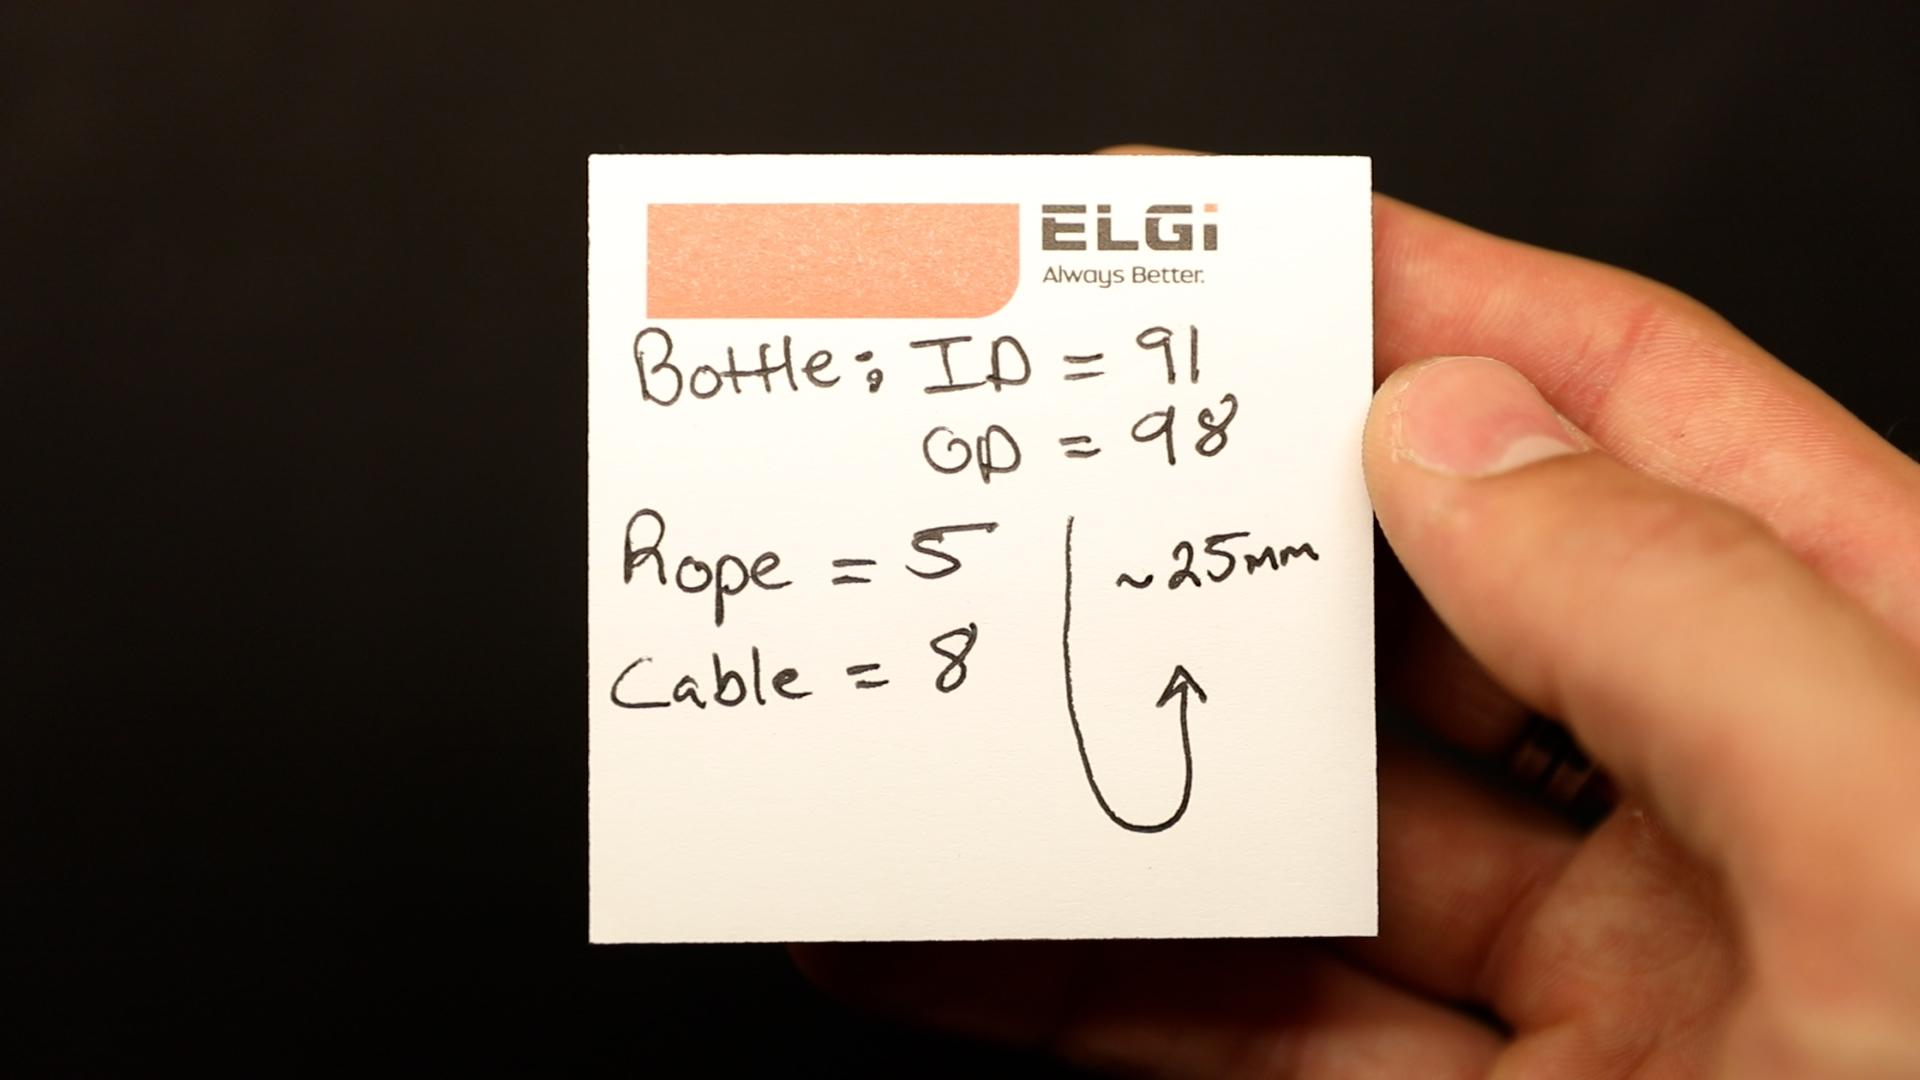 ELGi
Always Better.
Bottle: ID = 91
OD = 98
Rope = 5
~25mm
Cable = 8